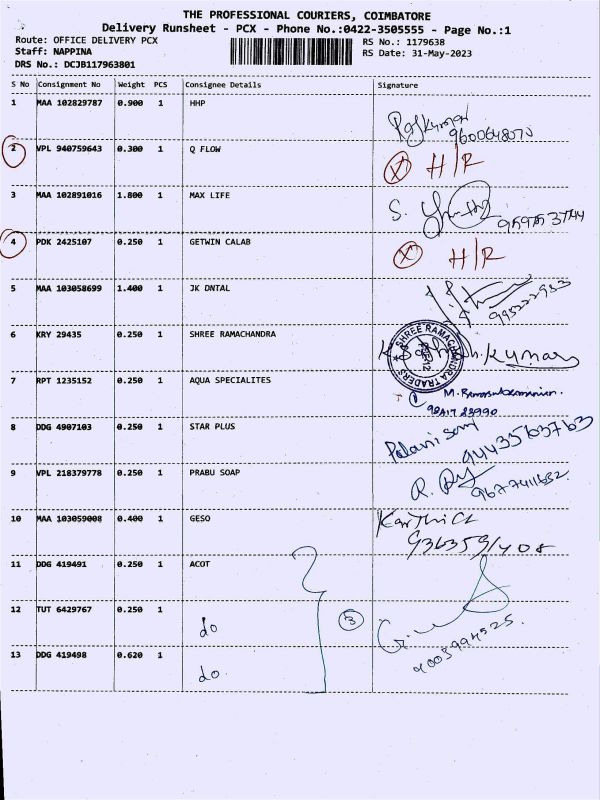 THE PROFESSIONAL COURIERS, COIMBATORE
Delivery Runsheet - PCX - Phone No.:0422-3505555 - Page No.:1
Route: OFFICE DELIVERY PCX
RS No.: 1179638
Staff: NAPPINA
RS Date: 31-May-2023
DRS No.: DCJB117963801
S No Consignment No Weight PCS Consignee Details Signature
1 MAA 102829787 0.900 1 HHP
Rajkumar
9600648070
2 VPL 940759643 0.300 1 Q FLOW
X H/R
3 MAA 102891016 1.800 1 MAX LIFE
S.
4 PDK 2425107 0.250 1 GETWIN CALAB
X H/R
5 MAA 103058699 1.400 1 JK DNTAL
995222983
6 KRY 29435 0.250 1 SHREE RAMACHANDRA
SHREE RAMACHANDRA TRADERS
kumar
7 RPT 1235152 0.250 1 AQUA SPECIALITES
M. Ramasubramanian.
8 DDG 4907103 0.250 1 STAR PLUS
Palanisamy
9443563763
9 VPL 218379778 0.250 1 PRABU SOAP
R.
9677411682.
10 MAA 103059008 0.400 1 GESO
Karthick
9363591408
11 DDG 419491 0.250 1 ACOT
12 TUT 6429767 0.250 1 do
3
13 DDG 419498 0.620 1 do.
9003994525.